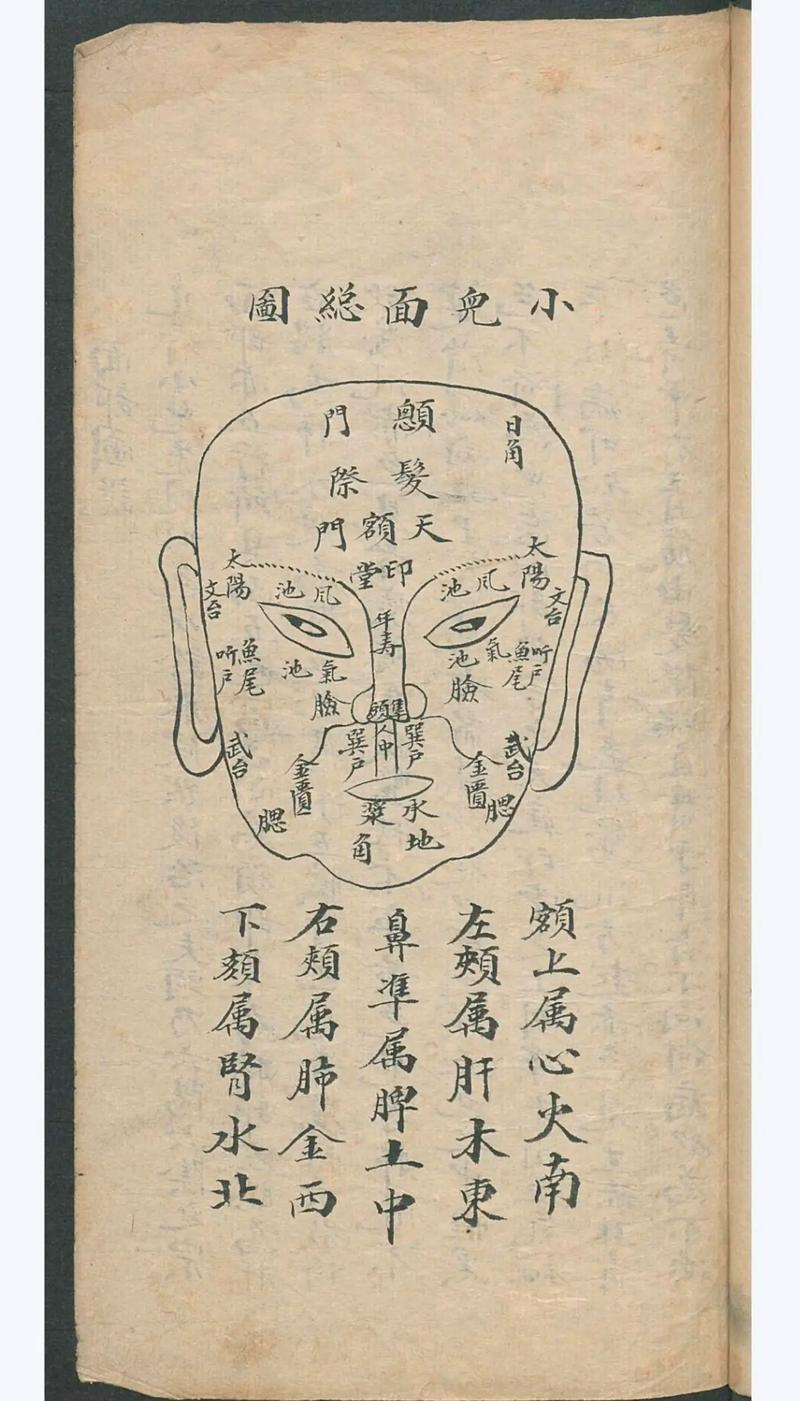 小兒面総圖
顖門
日角
髮際
天額門
印堂
太陽
太陽
風池
風池
文台
文台
年壽
氣池
氣池
魚尾
魚尾
听户
听户
臉
臉
準頭
人中
巽户
巽户
武台
武台
金匱
金匱
腮
腮
承漿
地角
額上属心火南
左頰属肝木東
鼻準属脾土中
右頰属肺金西
下頦属腎水北